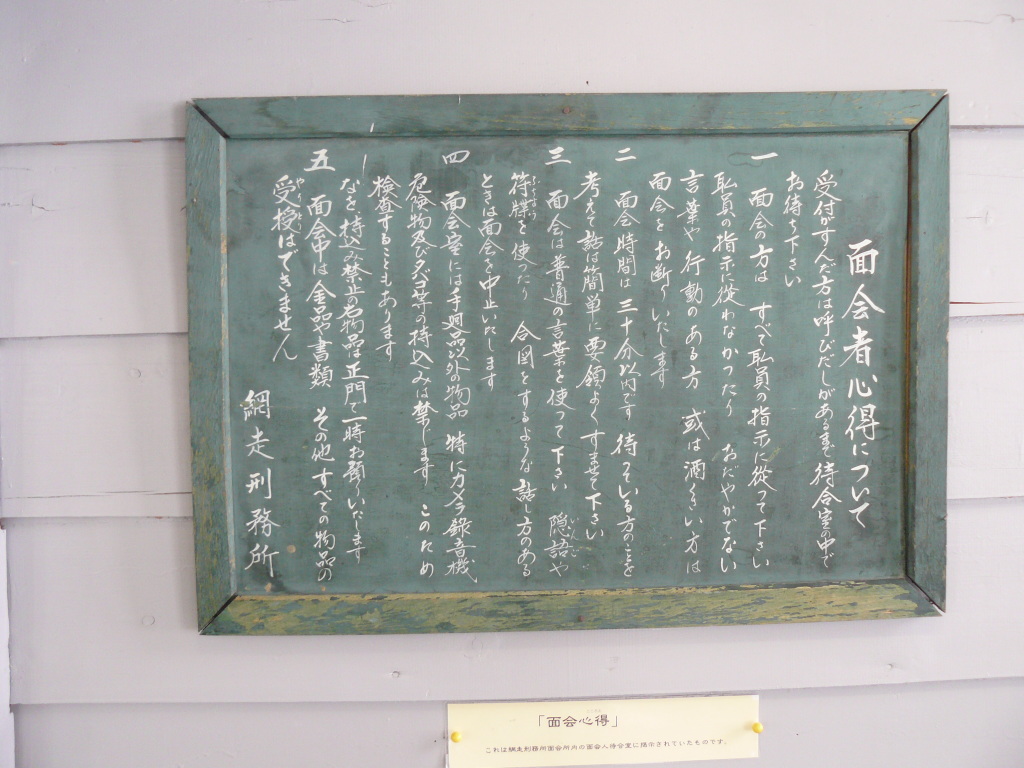 面会者心得について
受付がすんだ方は呼びだしがあるまで待合室の中で
お待ち下さい
一 面会の方は すべて職員の指示に従って下さい
職員の指示に従わなかったり おだやかでない
言葉や行動のある方 或は酒くさい方は
面会をお断りいたします
二 面会時間は 三十分以内です 待っている方のことを
考えて話は簡単に要領よくすませて下さい
三 面会は普通の言葉を使って下さい 隠語や
いんご
符牒を使ったり 合図をするような話し方のある
ふちょう
ときは面会を中止いたします
四 面会室には手廻品以外の物品 特にカメラ録音機
危険物及びタバコ等の持込みは禁じます このため
検査することもあります
なを持込み禁止の物品は正門で一時お預りいたします
五 面会中は金品や書類 その他すべての物品の
受授はできません
網走刑務所
「面会心得」
これは網走刑務所面会所内の面会人待合室に掲示されていたものです。